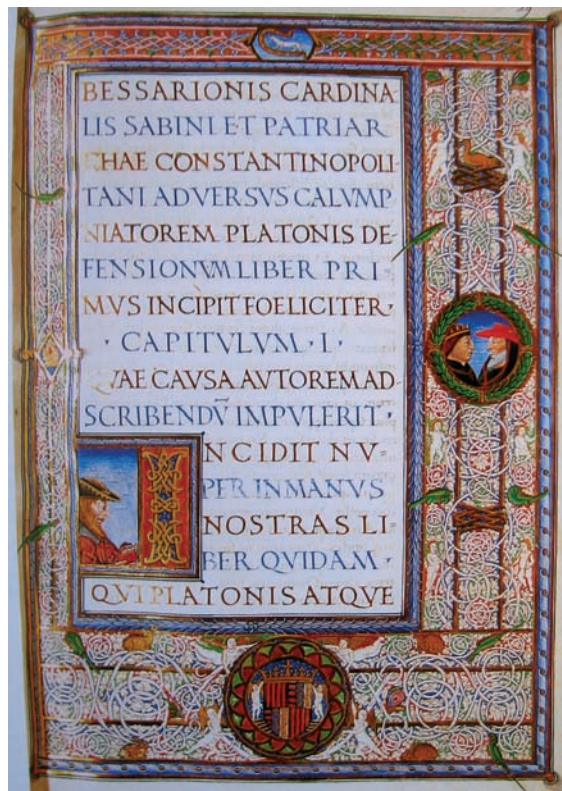 BESSARIONIS CARDINA
LIS SABINI ET PATRIAR
CHAE CONSTANTINOPOLI-
TANI ADVERSVS CALVMP
NIATOREM PLATONIS DE
FENSIONVM LIBER PRI-
MVS INCIPIT FOELICITER·
· CAPITVLVM · I ·
QVAE CAVSA AVTOREM AD
SCRIBENDV̄ IMPVLERIT ·
INCIDIT NV=
PER IN MANVS
NOSTRAS LI=
BER QVIDAM ·
QVI PLATONIS ATQVE